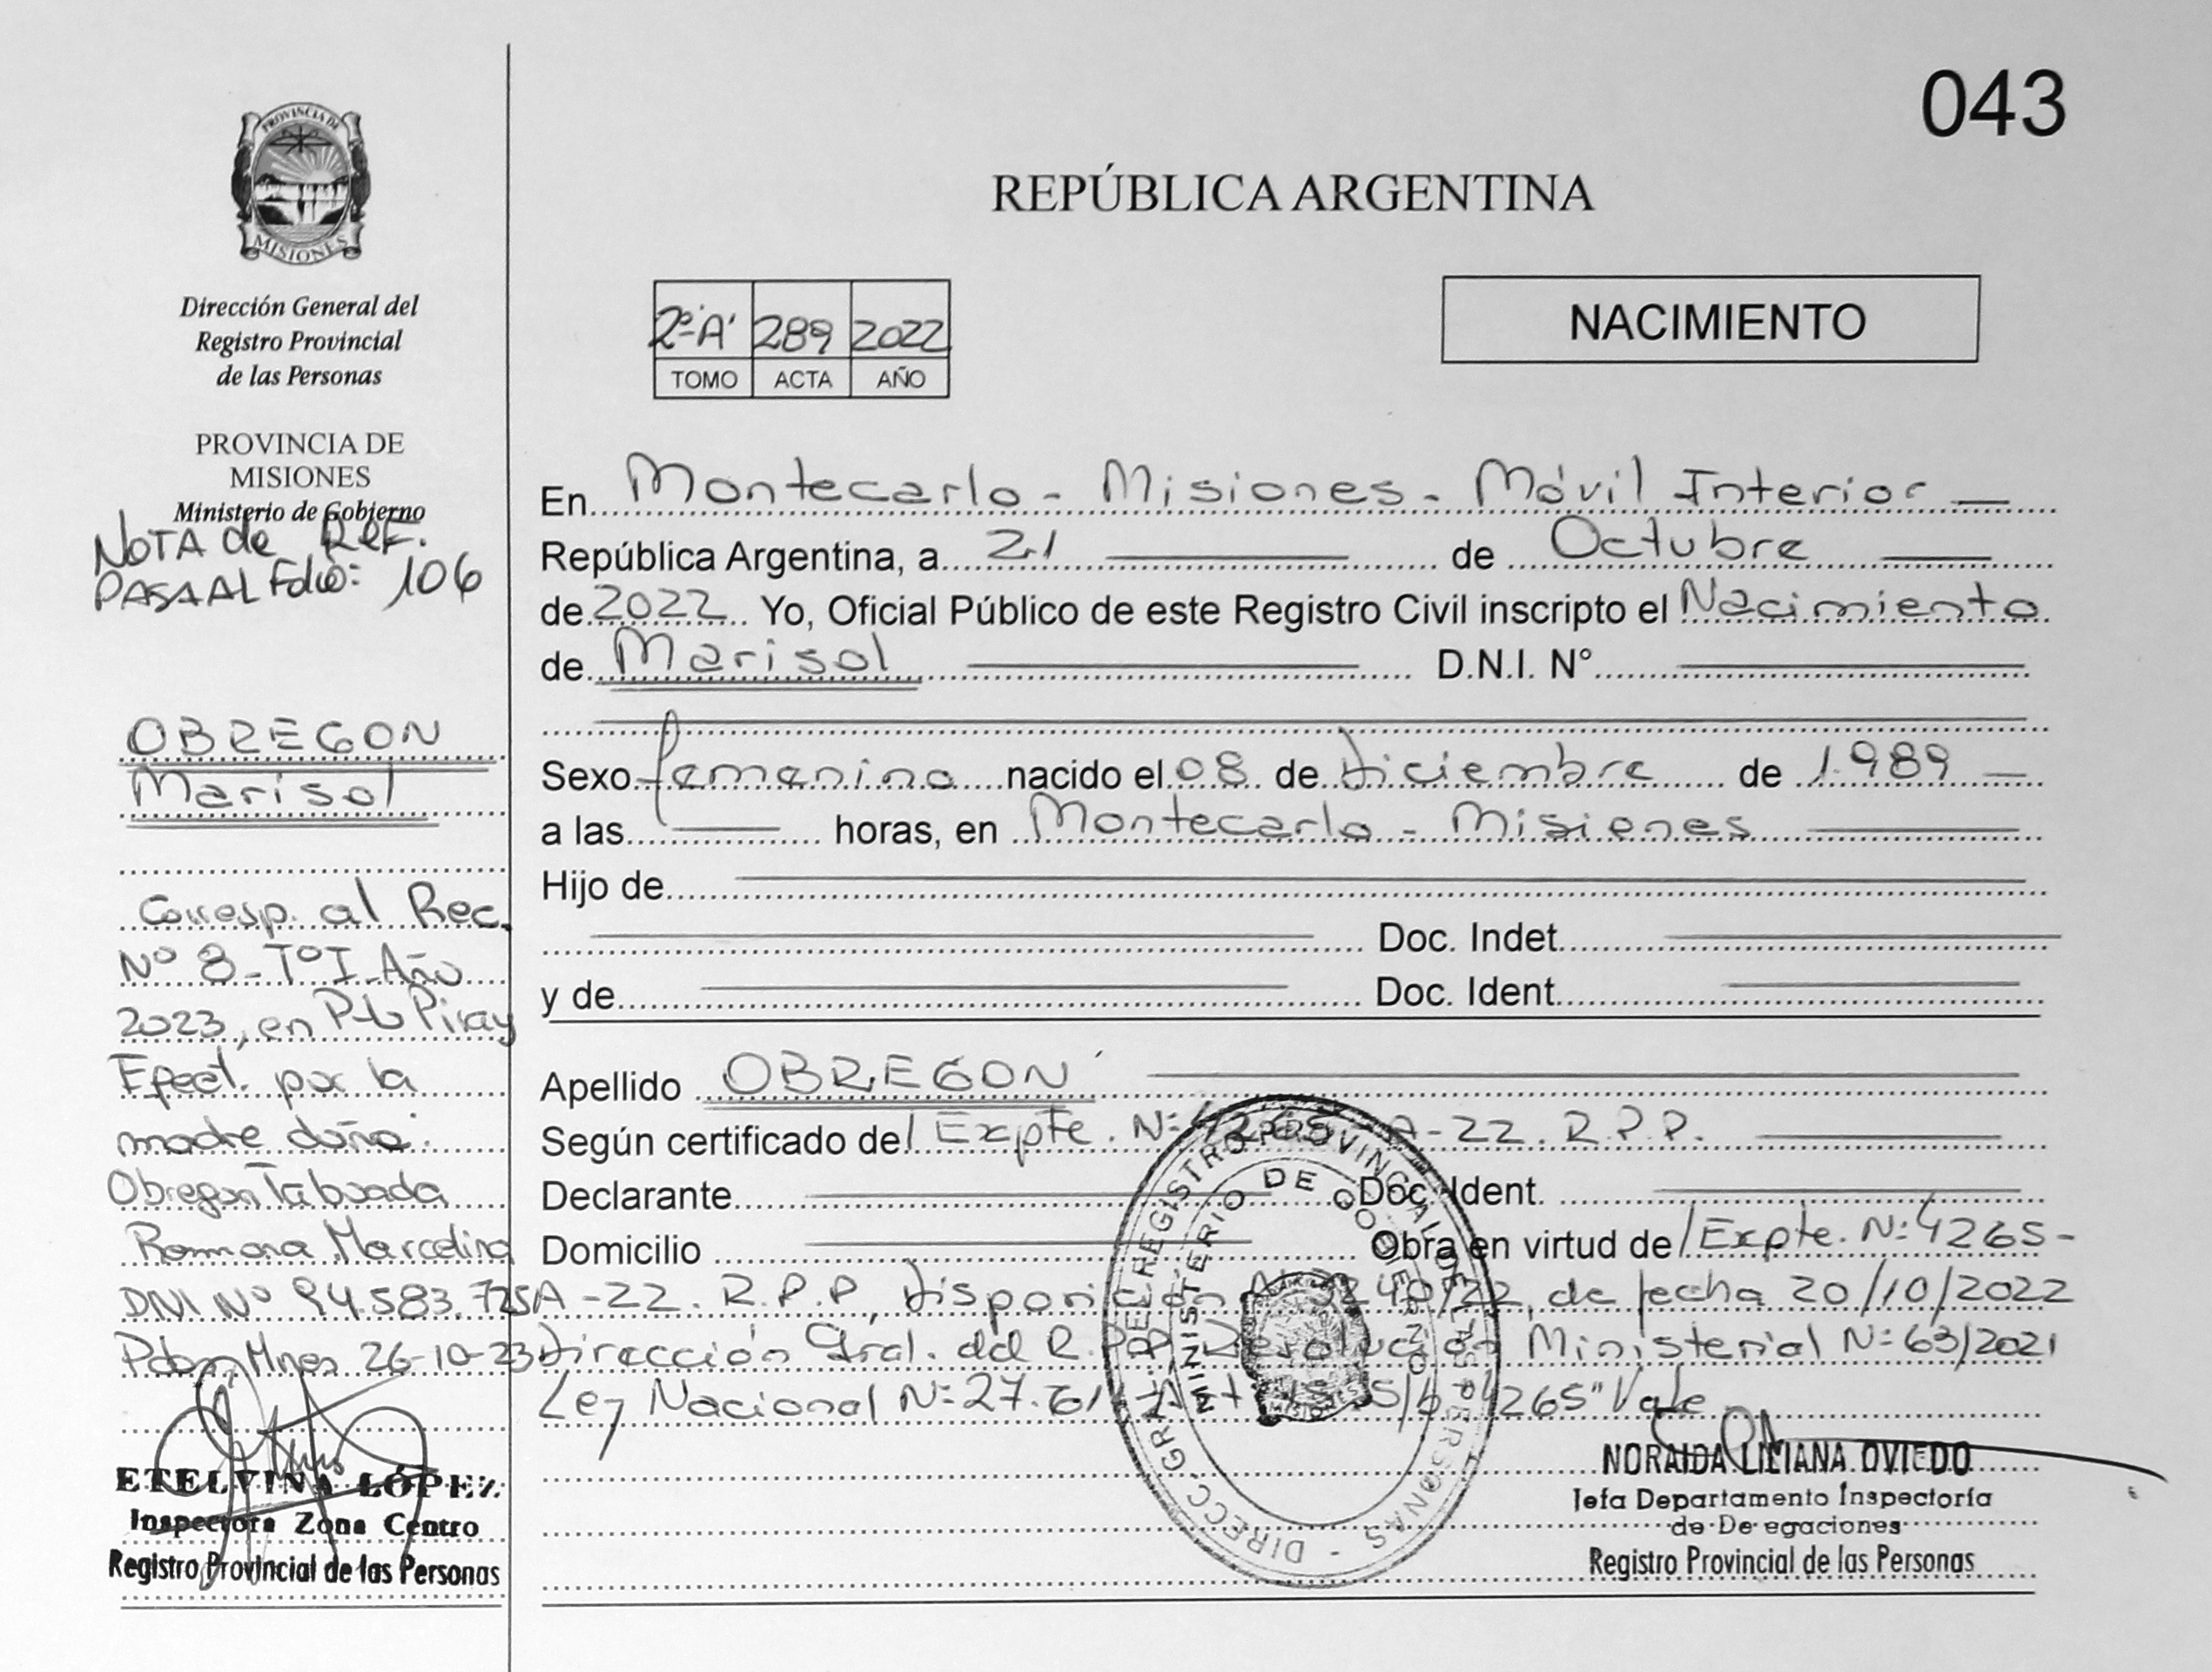 043
PROVINCIA DE
MISIONES
Dirección General del
Registro Provincial
de las Personas
PROVINCIA DE
MISIONES
Ministerio de Gobierno
NOTA de REF.
PASA AL Folio: 106
OBREGON
Marisol
Corresp. al Rec.
Nº 8 - TºI - Año
2023, en Pto Piray
Efect. por la
madre doña:
Obregon Taboada
Romona Marcelina
DNI Nº 94.583.725
Pdas Mnes 26-10-23
ETELVINA LÓPEZ
Inspectora Zona Centro
Registro Provincial de las Personas
REPÚBLICA ARGENTINA
2º "A" 289 2022
TOMO ACTA AÑO
NACIMIENTO
En Montecarlo - Misiones - Móvil Interior
República Argentina, a 21 de Octubre
de 2022 Yo, Oficial Público de este Registro Civil inscripto el Nacimiento
de Marisol D.N.I. N°
Sexo femenino nacido el 08 de Diciembre de 1989
a las horas, en Montecarlo - Misiones
Hijo de
Doc. Indet.
y de Doc. Ident.
Apellido OBREGON
Según certificado del Expte. Nº 4265-A-22. R.P.P.
Declarante Doc. Ident.
Domicilio Obra en virtud del Expte. Nº 4265-
A-22. R.P.P, Disposición 40/22, de fecha 20/10/2022
Dirección Gral. del R.P.P. Resolución Ministerial Nº 63/2021
Ley Nacional Nº 27.61 S/b "4265" Vale
DIRECC. GRAL. DEL REGISTRO PROVINCIAL DE LAS PERSONAS -
MINISTERIO DE GOBIERNO
MISIONES
NORAIDA LILIANA OVIEDO
Jefa Departamento Inspectoría
de De egaciones
Registro Provincial de las Personas